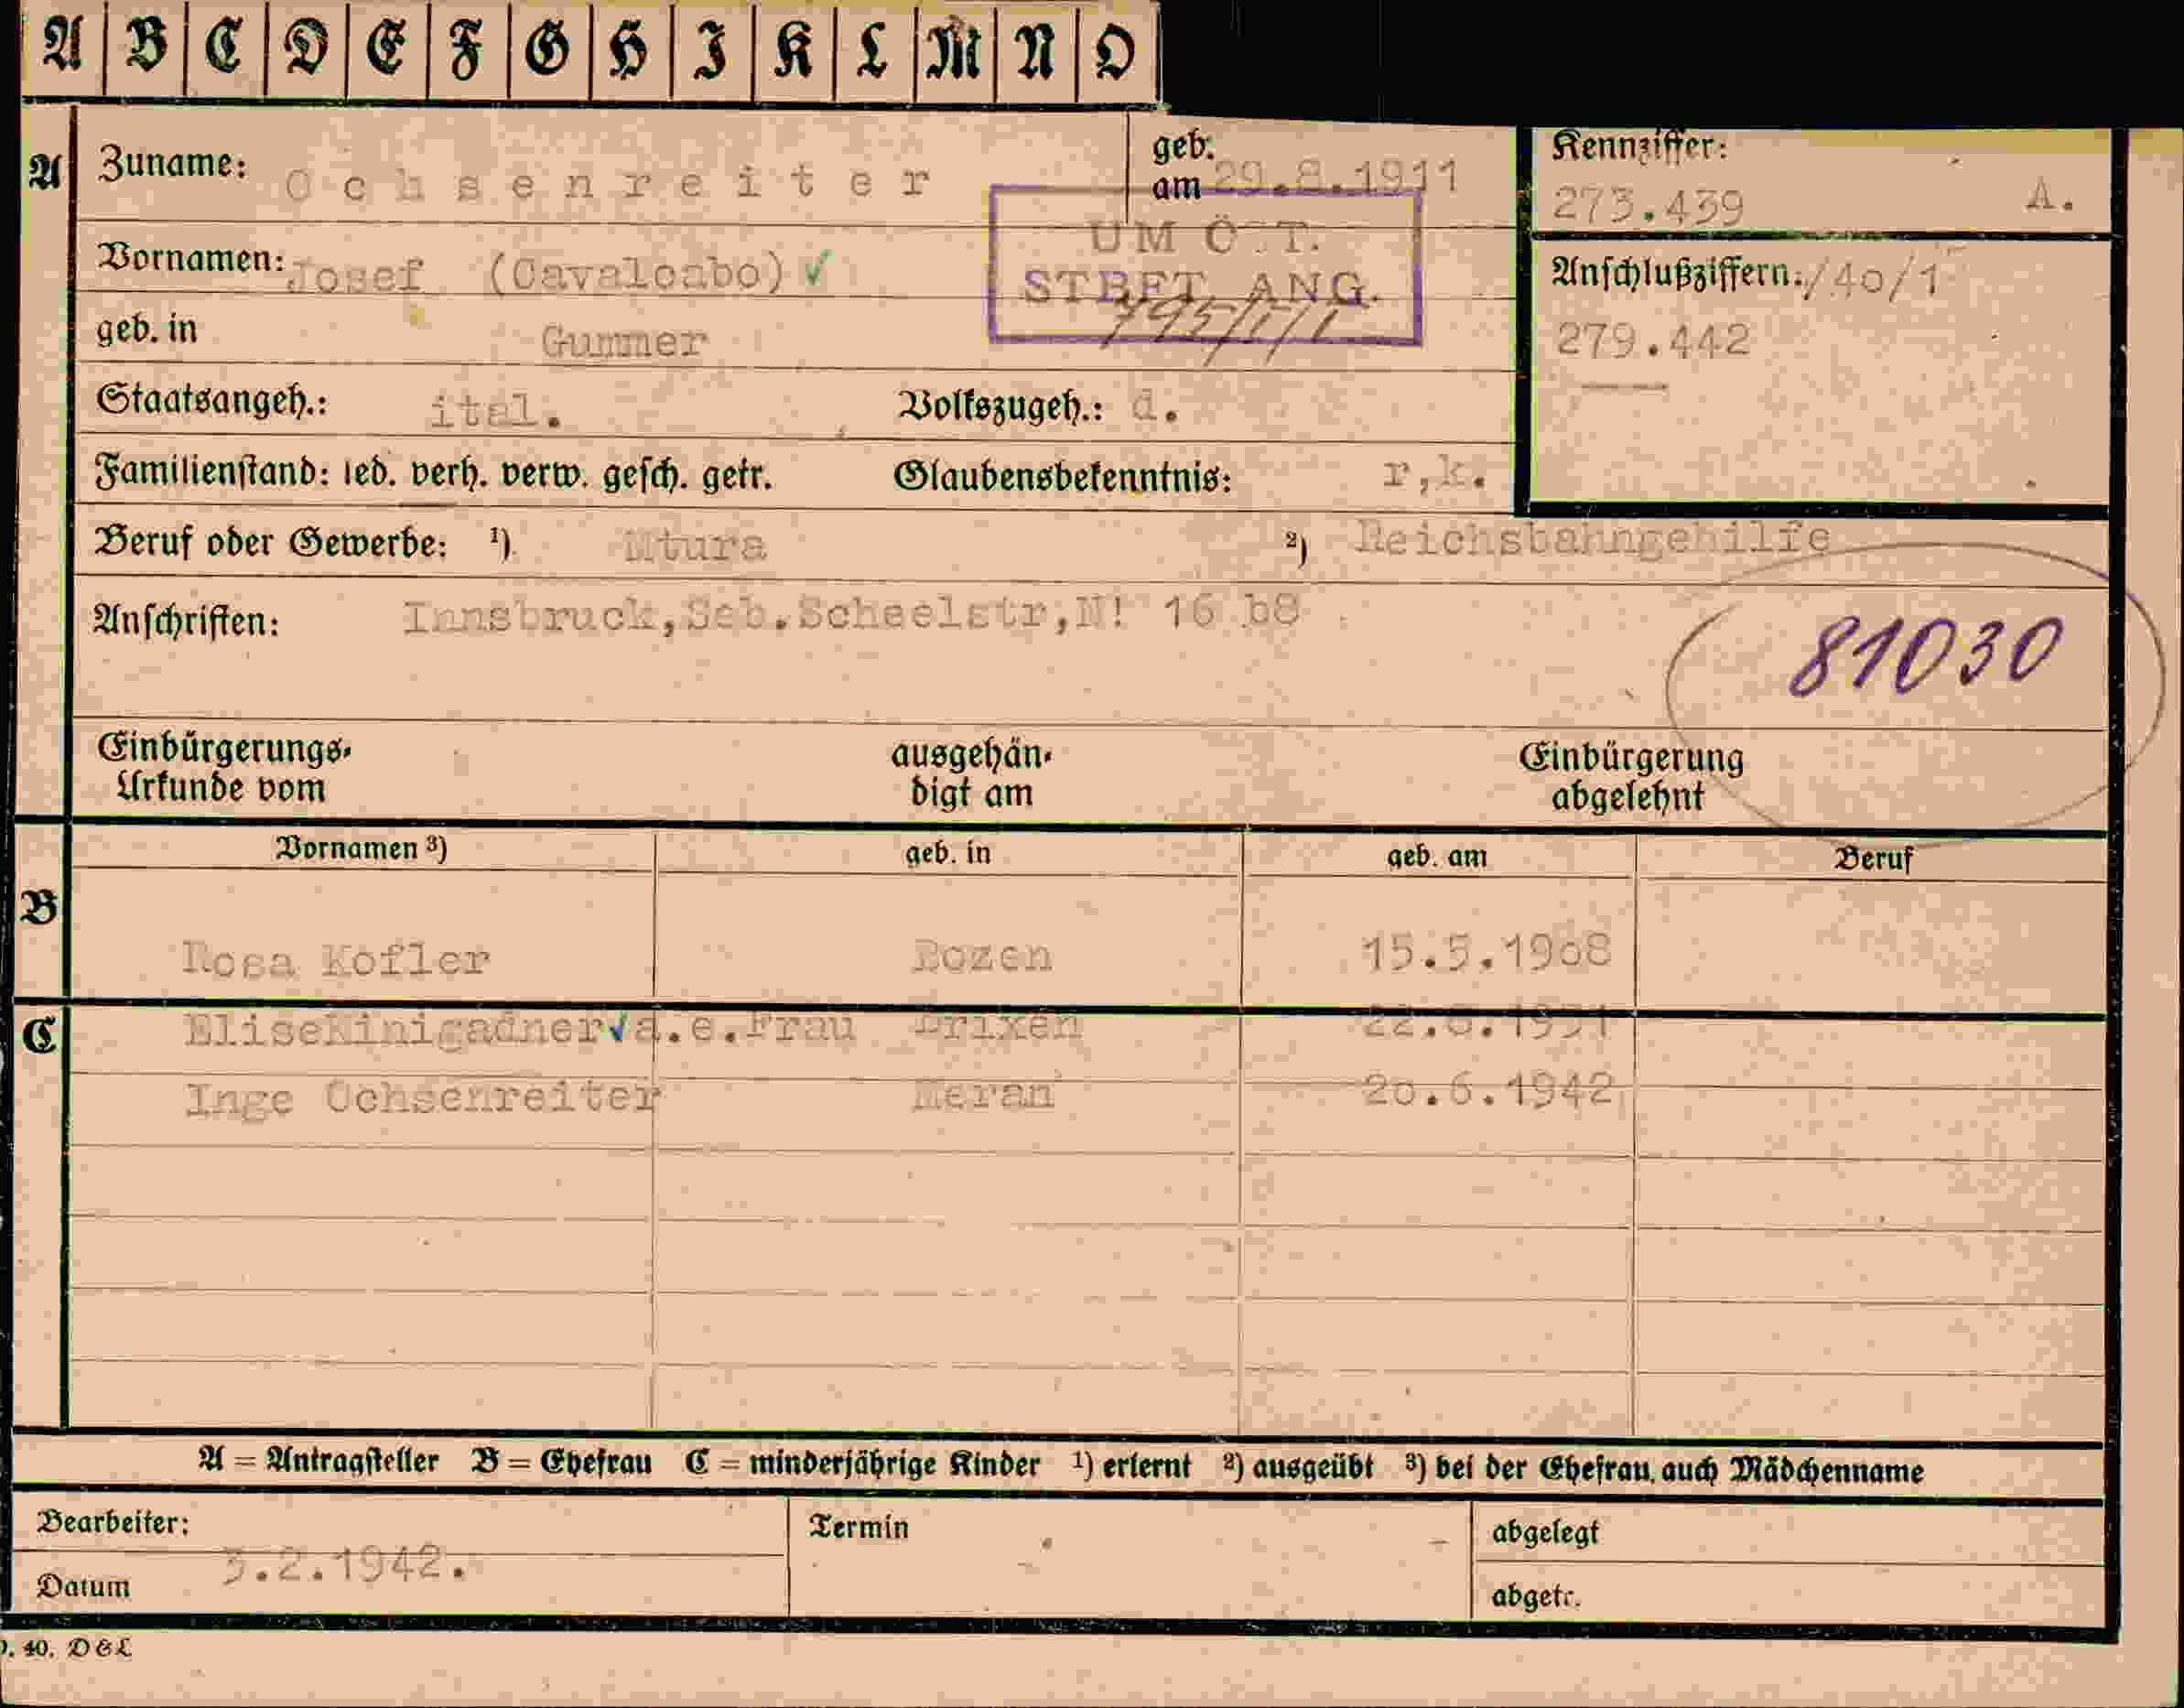 A B C D E F G H I K L M N O
A Zuname: Ochsenreiter geb. am 29.8.1911
Kennziffer: 273.439 A.
UM ÖST. STBFT. ANG. 795/I/1
Vornamen: Josef (Cavalcabo) ✓
Anschlußziffern: /40/1
279.442
geb. in Gummer
Staatsangeh.: ital. Volkszugeh.: d.
Familienstand: led. verh. verw. gesch. getr. Glaubensbekenntnis: r,k.
Beruf oder Gewerbe: ¹) Mtura ²) Reichsbahngehilfe
Anschriften: Innsbruck, Seb.Scheelstr,N! 16 b8
81030
Einbürgerungs-Urkunde vom ausgehändigt am Einbürgerung abgelehnt
Vornamen ³) geb. in geb. am Beruf
B Rosa Kofler Bozen 15.5.1908
C Elise Kinigadner ✓ a.e.Frau Brixen 22.6.1931
Inge Ochsenreiter Meran 20.6.1942
A = Antragsteller B = Ehefrau C = minderjährige Kinder ¹) erlernt ²) ausgeübt ³) bei der Ehefrau auch Mädchenname
Bearbeiter: Termin abgelegt
Datum 3.2.1942. abgetr.
40. D&L